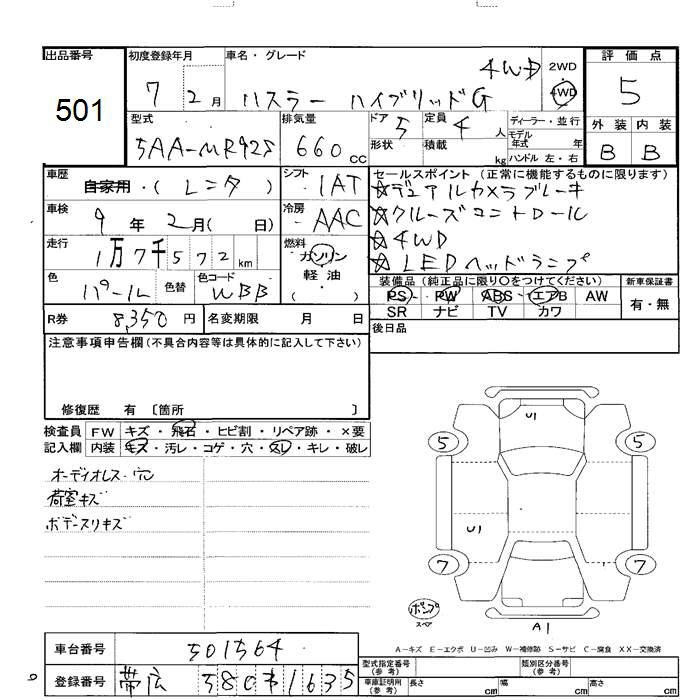 出品番号
501
初度登録年月
7 2月
車名・グレード
ハスラー ハイブリッドG 4WD
2WD
4WD
評価点
5
外装 内装
B B
型式
5AA-MR92S
排気量
660 cc
ドア 5
形状
定員 4 人
積載 kg
ディーラー・並行
モデル
年式 年
ハンドル 左・右
車歴
自家用・(レンタ)
シフト
IAT
車検
9年2月( 日)
冷房
AAC
走行
1万7千572km
燃料
ガソリン
軽油
( ・ )
色
パール
色替
色コード
WBB
セールスポイント(正常に機能するものに限ります)
☆デュアルカメラブレーキ
☆クルーズコントロール
☆4WD
☆LEDヘッドランプ
装備品(純正品に限り○をつけてください)
新車保証書
PS PW ABS エアB AW
SR ナビ TV カワ
有・無
R券
8,350円
名変期限 月 日
後日品
注意事項申告欄(不具合内容等は具体的に記入して下さい)
修復歴 有 〔箇所 〕
検査員
記入欄
FW キズ・飛石・ヒビ割・リペア跡・×要
内装 キズ・汚レ・コゲ・穴・スレ・キレ・破レ
オーディオレス・穴
荷室キズ
ボデースリキズ
U1
5 5
U1
7 7
ポンプ
スペア
A1
A-キズ E-エクボ U-凹み W-補修跡 S-サビ C-腐食 XX-交換済
車台番号
501564
登録番号
帯広 580 1635
型式指定番号
(参考)
類別区分番号
(参考)
車庫証明用
(参考)
長さ cm 幅 cm 高さ cm